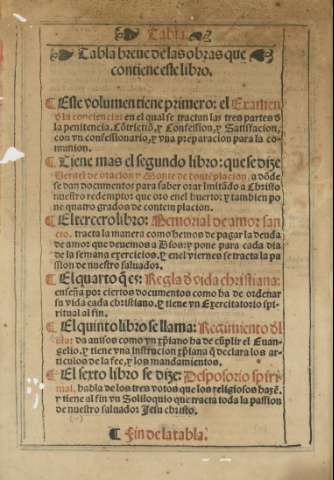 Tabla.
Tabla breue de las obras que
contiene este libro.
¶ Este volumen tiene primero: el Examen
d̃ la conciencia: en el qual se tractan las tres partes d̃
la penitencia. Cõtriciõ, y Confession, y Satisfacion,
con vn confessionario, y vna preparacion para la co-
munion.
¶ Tiene mas el segundo libro: que se dize
Vergel de oracion y Monte de contẽplacion, a dõde
se dan documentos para saber orar imitãdo a Christo
nuestro redemptor que oro en el huerto: y tambien po
ne quatro grados de contemplacion.
El tercero libro: Memorial de amor san
cto. tracta la manera como hemos de pagar la deuda
de amor que deuemos a Dios: y pone para cada dia
de la semana exercicios, y en el viernes se tracta la pa
ssion de nuestro saluador.
¶ El quarto q̃ es: Regla d̃ vida christiana:
enseña por ciertos documentos como ha de ordenar
su vida cada christiano. y tiene vn Exercitatorio spiri-
tual al fin.
¶ El quinto libro se llama: Regimiento d̃l
da auisos como vn xp̃iano ha de cũplir el Euan-
gelio. y tiene vna instrucion xp̃iana q̃ declara los ar-
ticulos de la fee, y los mandamientos.
¶ El sexto libro se dize: Desposorio spiri-
tual, habla de los tres votos que los religiosos hazẽ.
y tiene al fin vn Soliloquio que tracta toda la passion
de nuestro saluador Jesu christo.
¶ Fin de la tabla.